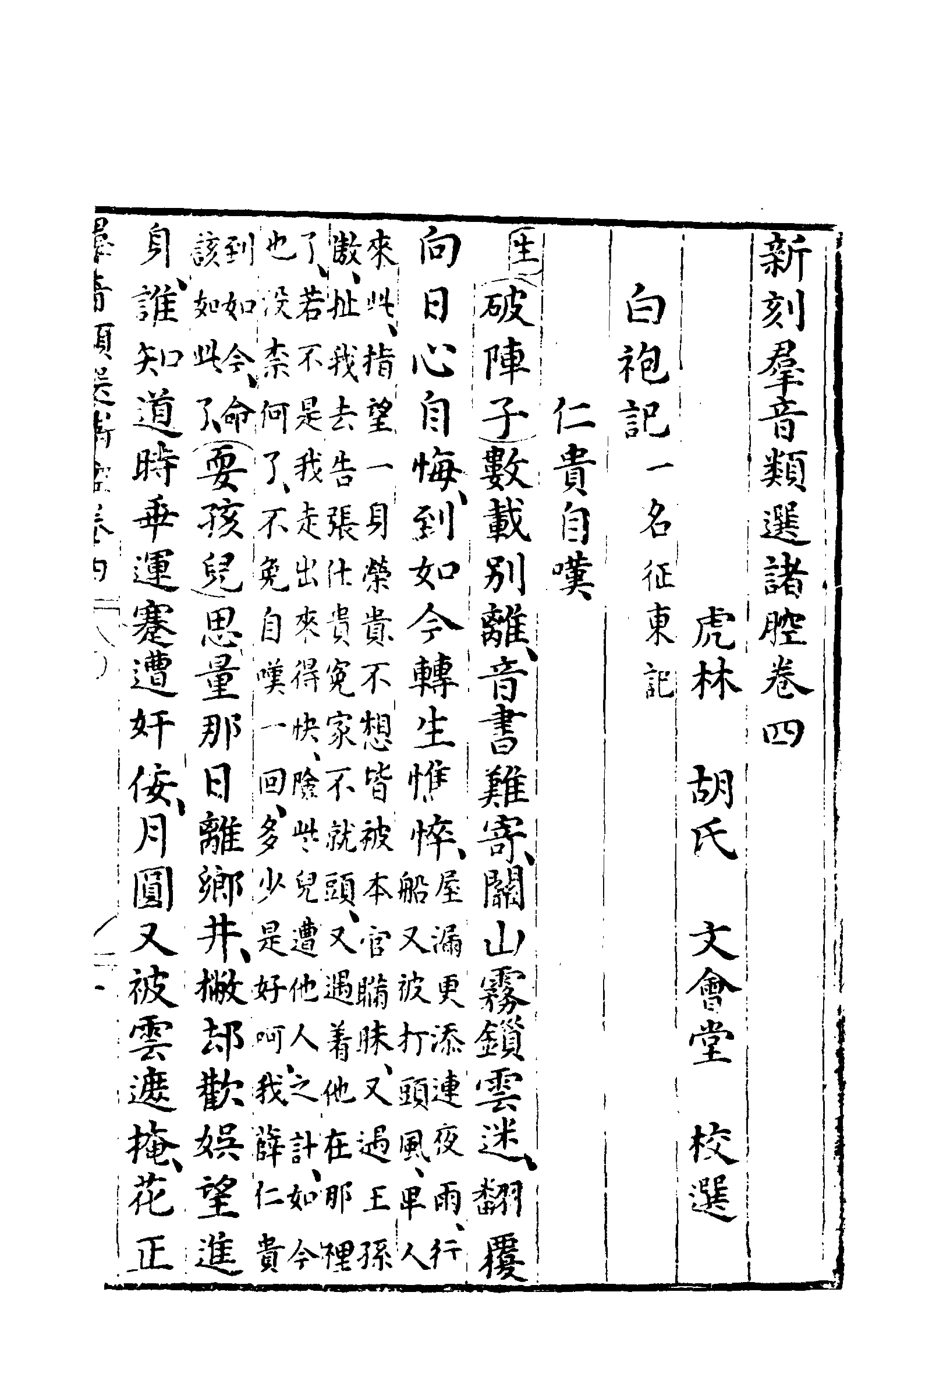 新刻羣音類選諸腔卷四
虎林 胡氏 文會堂 校選
白袍記 一名征東記
仁貴自嘆
生 破陣子 數載別離、音書難寄、關山霧鎖雲迷、翻覆
向日心自悔、到如今轉生憔悴、屋漏更添連夜雨、行
船又被打頭風、單人
來此、指望一身榮貴不想皆被本官瞞昧、又遇王孫
傲、扯我去告張仕貴寃家不就頭、又遇着他在那裡
了、若不是我走出來得快、險些兒遭他人之計、如今
也沒柰何了、不免自嘆一回、多少是好呵、我薛仁貴
到如今、命
該如此了、耍孩兒 思量那日離鄉井、撇却歡娛望進
身、誰知道時乖運蹇遭奸佞、月圓又被雲遮掩、花正